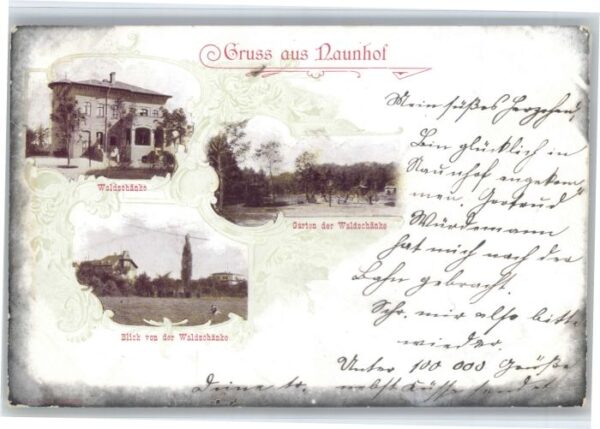 Gruss aus Naunhof
Waldschänke
Garten der Waldschänke
Blick von der Waldschänke
Mein süßes Herzchen,
Bin glücklich in
Naunhof angekom-
men. Gertrud
Würdemann
hat mich nach der
Bahn gebracht.
Schr. mir also bitte
wieder.
Unter 100 000 Grüße
nebst Küsse sendet
Deine